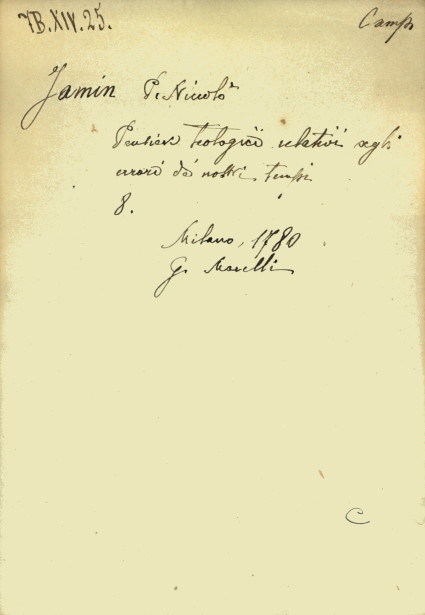 7B.XIV.25.
Camp
Jamin P. Niccolò
Pensieri teologici relativi agli
errori de' nostri tempi
8.
Milano, 1780
G. Marelli
C